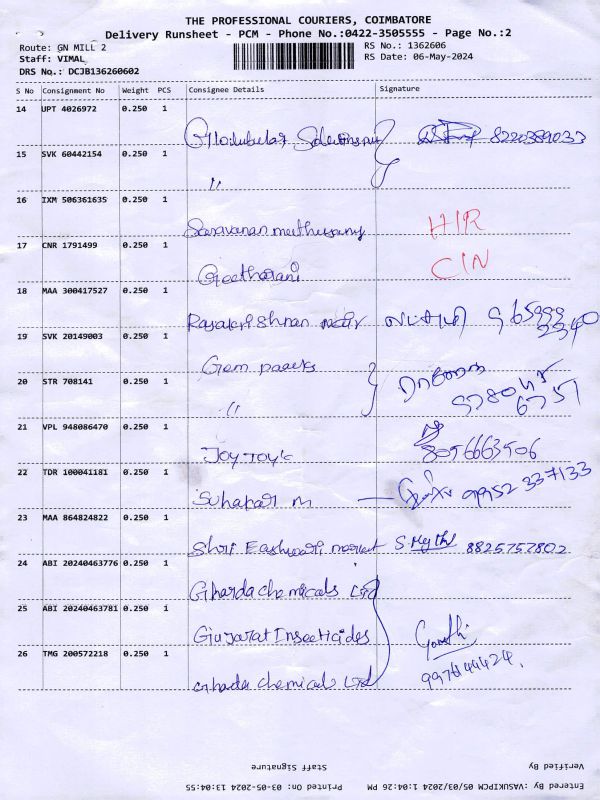 THE PROFESSIONAL COURIERS, COIMBATORE
Delivery Runsheet - PCM - Phone No.:0422-3505555 - Page No.:2
Route: GN MILL 2
RS No.: 1362606
Staff: VIMAL
RS Date: 06-May-2024
DRS No.: DCJB136260602
S No Consignment No Weight PCS Consignee Details Signature
14 UPT 4026972 0.250 1
8220389033
15 SVK 60442154 0.250 1
〃
16 IXM 506361635 0.250 1
Saravanan muthusamy HIR
17 CNR 1791499 0.250 1
Geetharani CIN
18 MAA 300417527 0.250 1
Rajakrishnan nair
19 SVK 20149003 0.250 1
Gem paarks
20 STR 708141 0.250 1
〃
21 VPL 948086470 0.250 1
Joy Toy's 8056663506
22 TDR 100041181 0.250 1
Suhakar m 99952 337133
23 MAA 864824822 0.250 1
Shri Eashwari market 8825757802
24 ABI 20240463776 0.250 1
Gharda chemicals Ltd
25 ABI 20240463781 0.250 1
Gujarat Insecticides
26 TMG 200572218 0.250 1
Gharda chemical Ltd
Staff Signature
Verified By
Printed On: 03-05-2024 13:04:55
Entered By: :VASUKIPCM 05/03/2024 1:04:26 PM